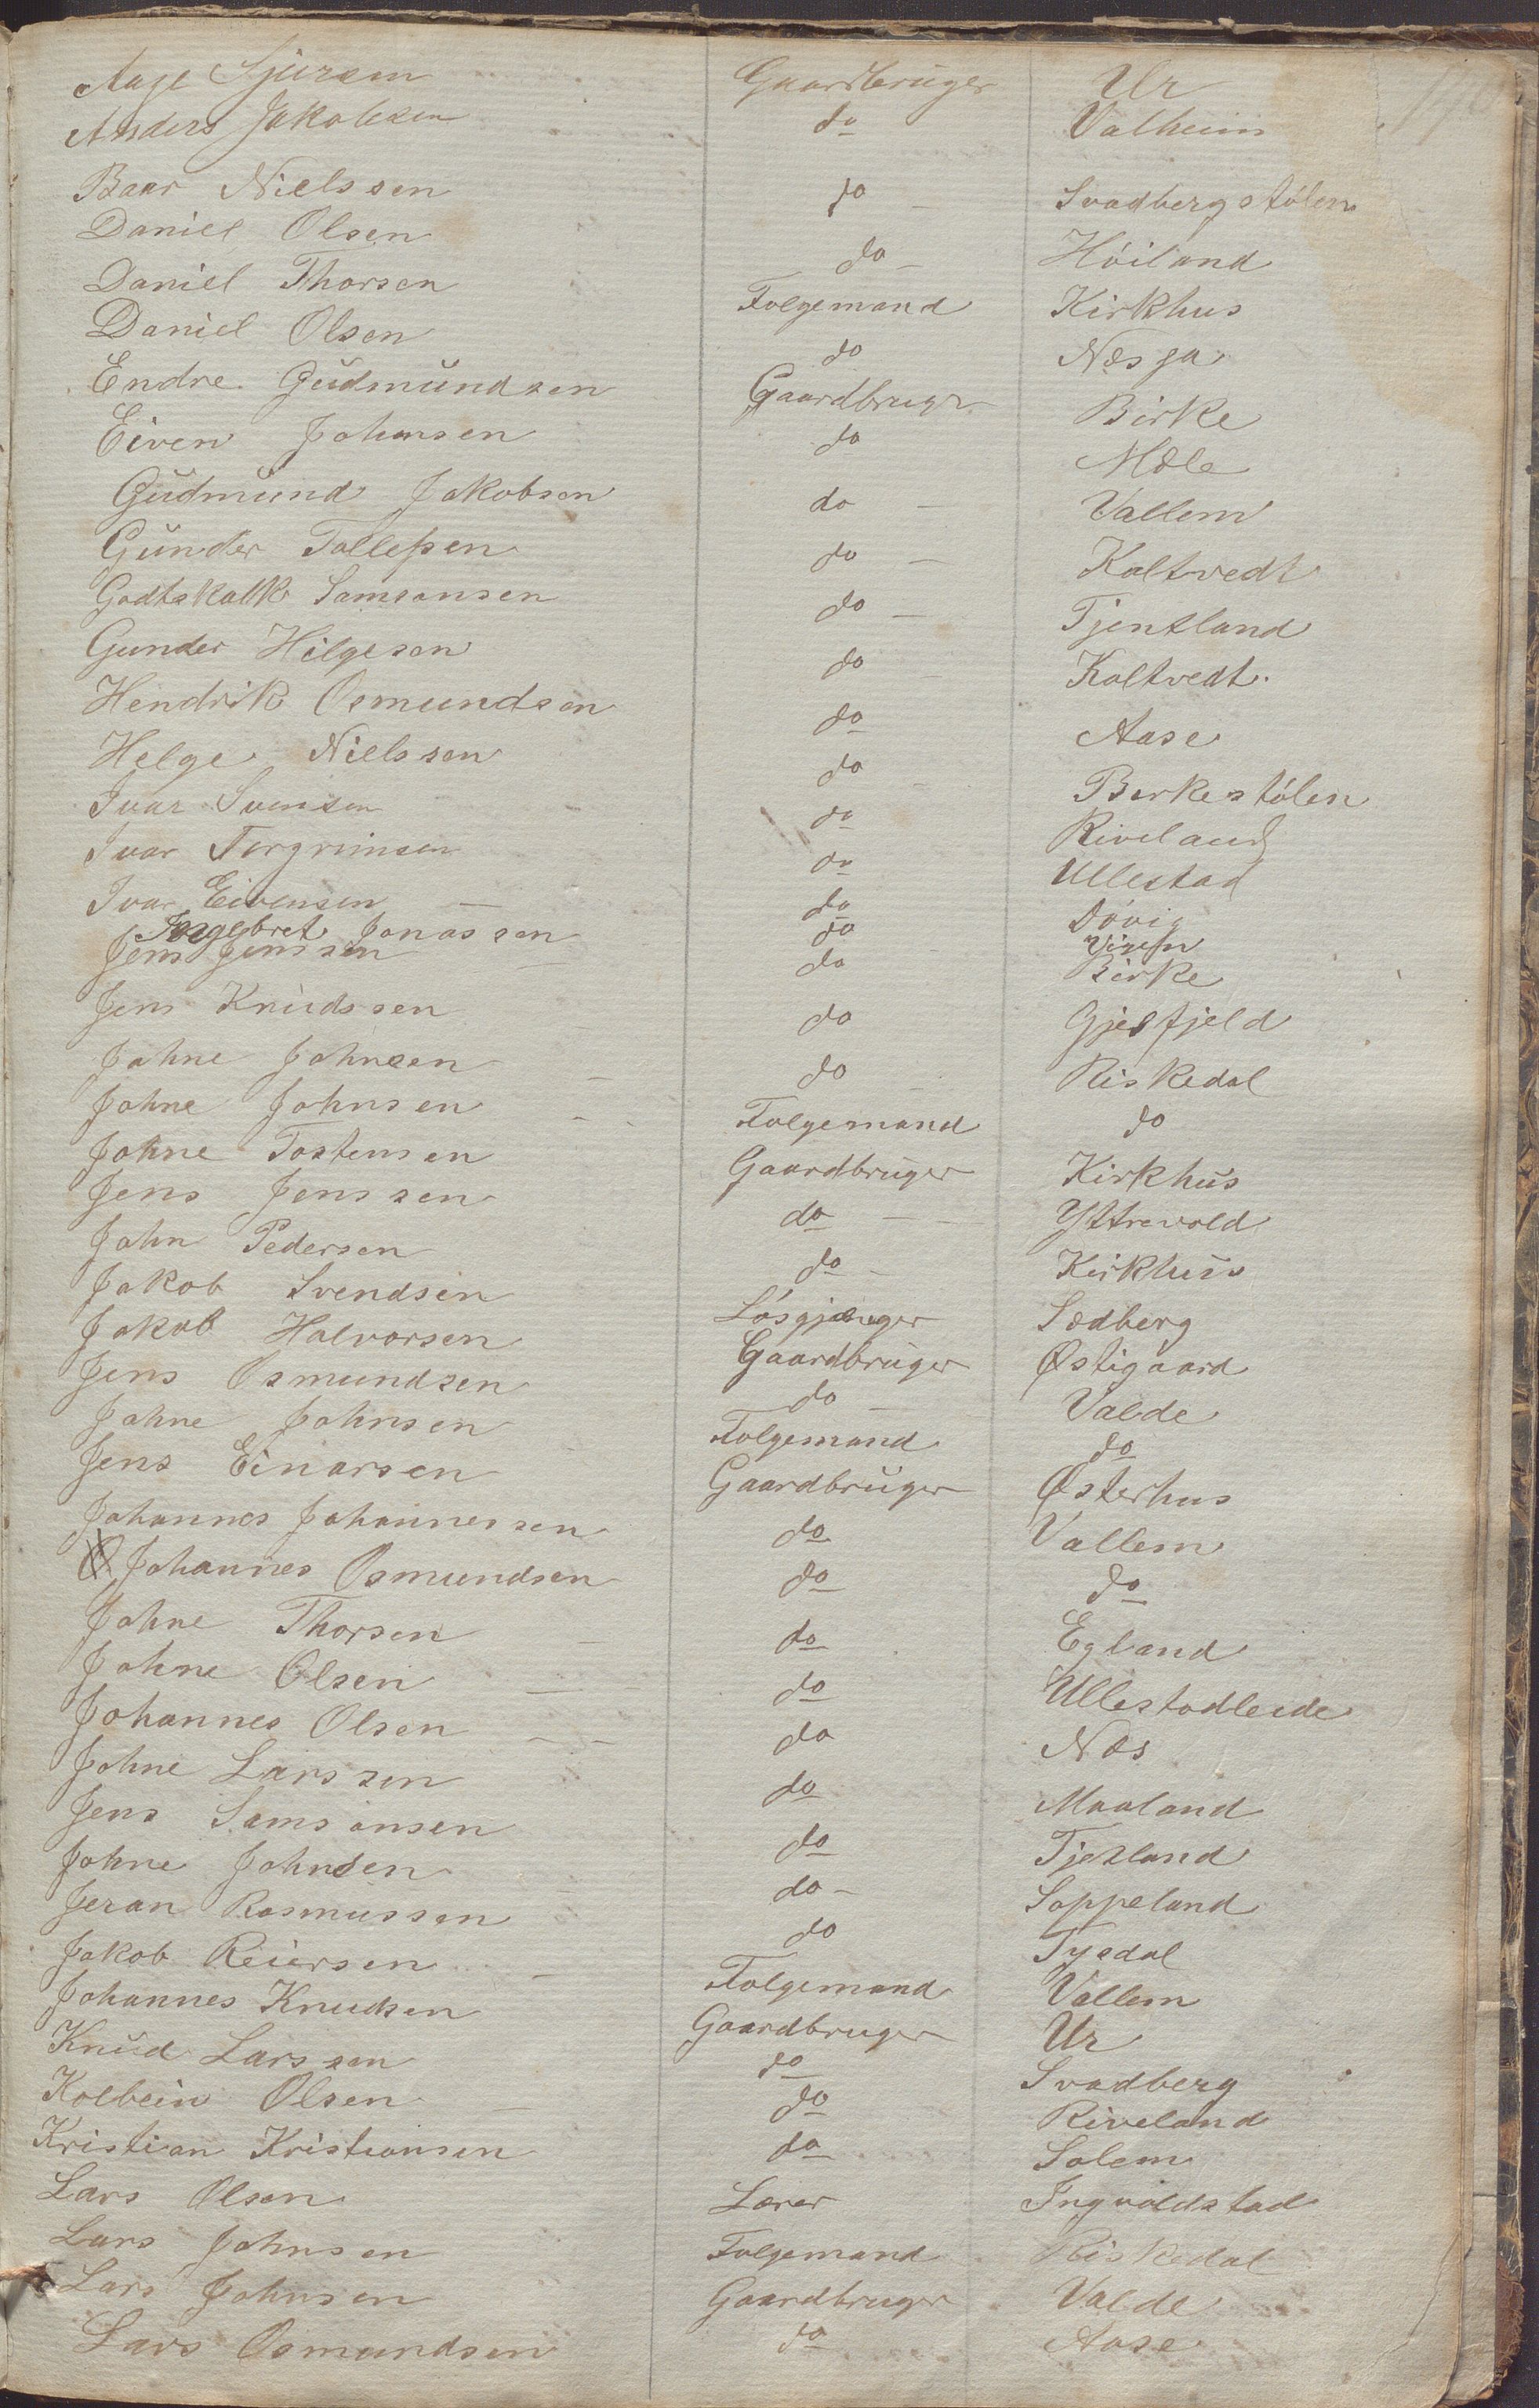 Aage Sjursen Gaardbruger Ur
Anders Jakobsen do Valheim
Baar Nielssen do Svadbergstølen
Daniel Olsen do Høiland
Daniel Thorsen Folgemand Kirkhus
Daniel Olsen do Næsja
Endre Gudmundsen Gaardbrugr Birke
Eiven Johansen do Mæle
Gudmund Jakobsen do Vallem
Gunder Tollefsen do Kaltvedt
Godtskalk Samsonsen do Tjentland
Gunder Hilgesen do Kaltvedt.
Hendrik Osmundsen do Aase
Helge Nielssen do Berkestølen
Ivar Svensen do Riveland
Ivar Torgrimsen do Ullestad
Ivar Eivensen do Døvig
Ingebret Jonassen do
Jens Jenssen do Birke
Jens Knudssen do Gjesfjeld
Johne Johnsen do Riskedal
Johne Johnsen Folgemand do
Johne Tostensen Gaardbruger Kirkhus
Jens Jenssen do Yttrevold
John Pedersen do Kirkhus
Jakob Svendsen Løsgjænger Sædberg
Jakob Halvorsen Gaardbruger Østigaard
Jens Osmundsen do Valde
Johne Johnsen Folgemand do
Jens Einarsen Gaardbruger Østerhus
Johannes Johannessen do Vallem
Johannes Osmundsen do do
Johne Thorsen do Egland
Johne Olsen do Ullestadleede
Johannes Olsen do Næs
Johne Larssen do Maaland
Jens Samsonsen do Tjetland
Johne Johnsen do Soppeland
Jeran Rasmussen do Tysdal
Jakob Reiersen Folgemand Vallem
Johannes Knudsen Gaardbruger Ur
Knud Larssen do Svadberg
Kolbein Olsen do Riveland
Kristian Kristiansen do Solem
Lars Olsen Lærer Ingvoldstad
Lars Johnsen Folgemand Riskedal
Lars Johnsen Gaardbruger Valde
Lars Osmundsen do Aase